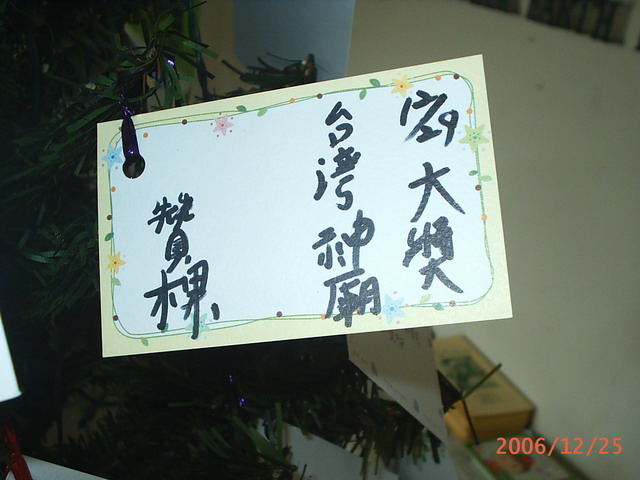 大獎
台灣神廟
贊棵
2006/12/25